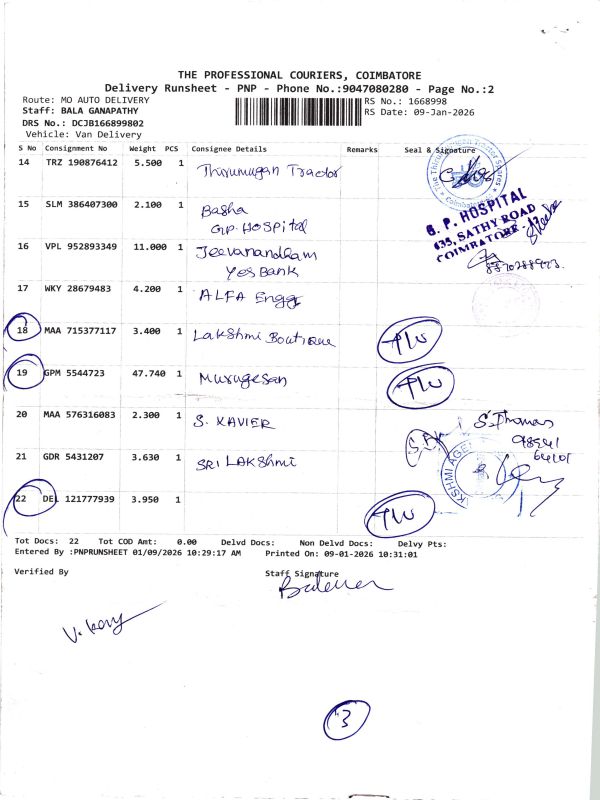 THE PROFESSIONAL COURIERS, COIMBATORE
Delivery Runsheet - PNP - Phone No.:9047080280 - Page No.:2
Route: MO AUTO DELIVERY
RS No.: 1668998
Staff: BALA GANAPATHY
RS Date: 09-Jan-2026
DRS No.: DCJB166899802
Vehicle: Van Delivery
S No Consignment No Weight PCS Consignee Details Remarks Seal & Signature
14 TRZ 190876412 5.500 1 Thirumugan Tractor
15 SLM 386407300 2.100 1 Basha
G.P. HOSPITAL
G. P. HOSPITAL
435, SATHY ROAD
COIMBATORE-12
16 VPL 952893349 11.000 1 Jeevanandham
Yes Bank
17 WKY 28679483 4.200 1 ALFA Engg
18 MAA 715377117 3.400 1 Lakshmi Boutique
19 GPM 5544723 47.740 1 Murugesan
20 MAA 576316083 2.300 1 S. XAVIER
S. Thomas
21 GDR 5431207 3.630 1 SRI LAKSHMI
22 DEL 121777939 3.950 1
Tot Docs: 22 Tot COD Amt: 0.00 Delvd Docs: Non Delvd Docs: Delvy Pts:
Entered By :PNPRUNSHEET 01/09/2026 10:29:17 AM Printed On: 09-01-2026 10:31:01
Verified By
Staff Signature
3